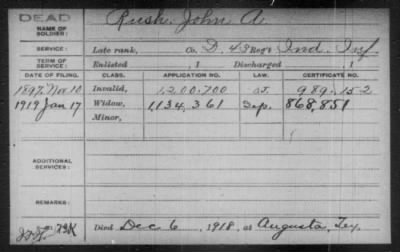 DEAD
NAME OF SOLDIER: Rush, John A.
SERVICE: Late rank, Co. D, 43 Reg't Ind. Inf.
TERM OF SERVICE: Enlisted , 1 Discharged , 1
DATE OF FILING. CLASS. APPLICATION NO. LAW. CERTIFICATE NO.
1897 Nov 10 Invalid, 1,200,700 989,152
1919 Jan 17 Widow, 1,134,361 868,851
Minor,
ADDITIONAL SERVICES:
REMARKS:
Died Dec 6, 1918, at Augusta, Tex.